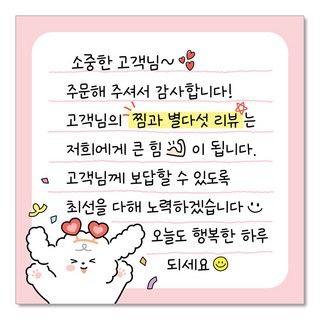 소중한 고객님~
주문해 주셔서 감사합니다!
고객님의 찜과 별다섯 리뷰 는
저희에게 큰 힘 이 됩니다.
고객님께 보답할 수 있도록
최선을 다해 노력하겠습니다
오늘도 행복한 하루
되세요